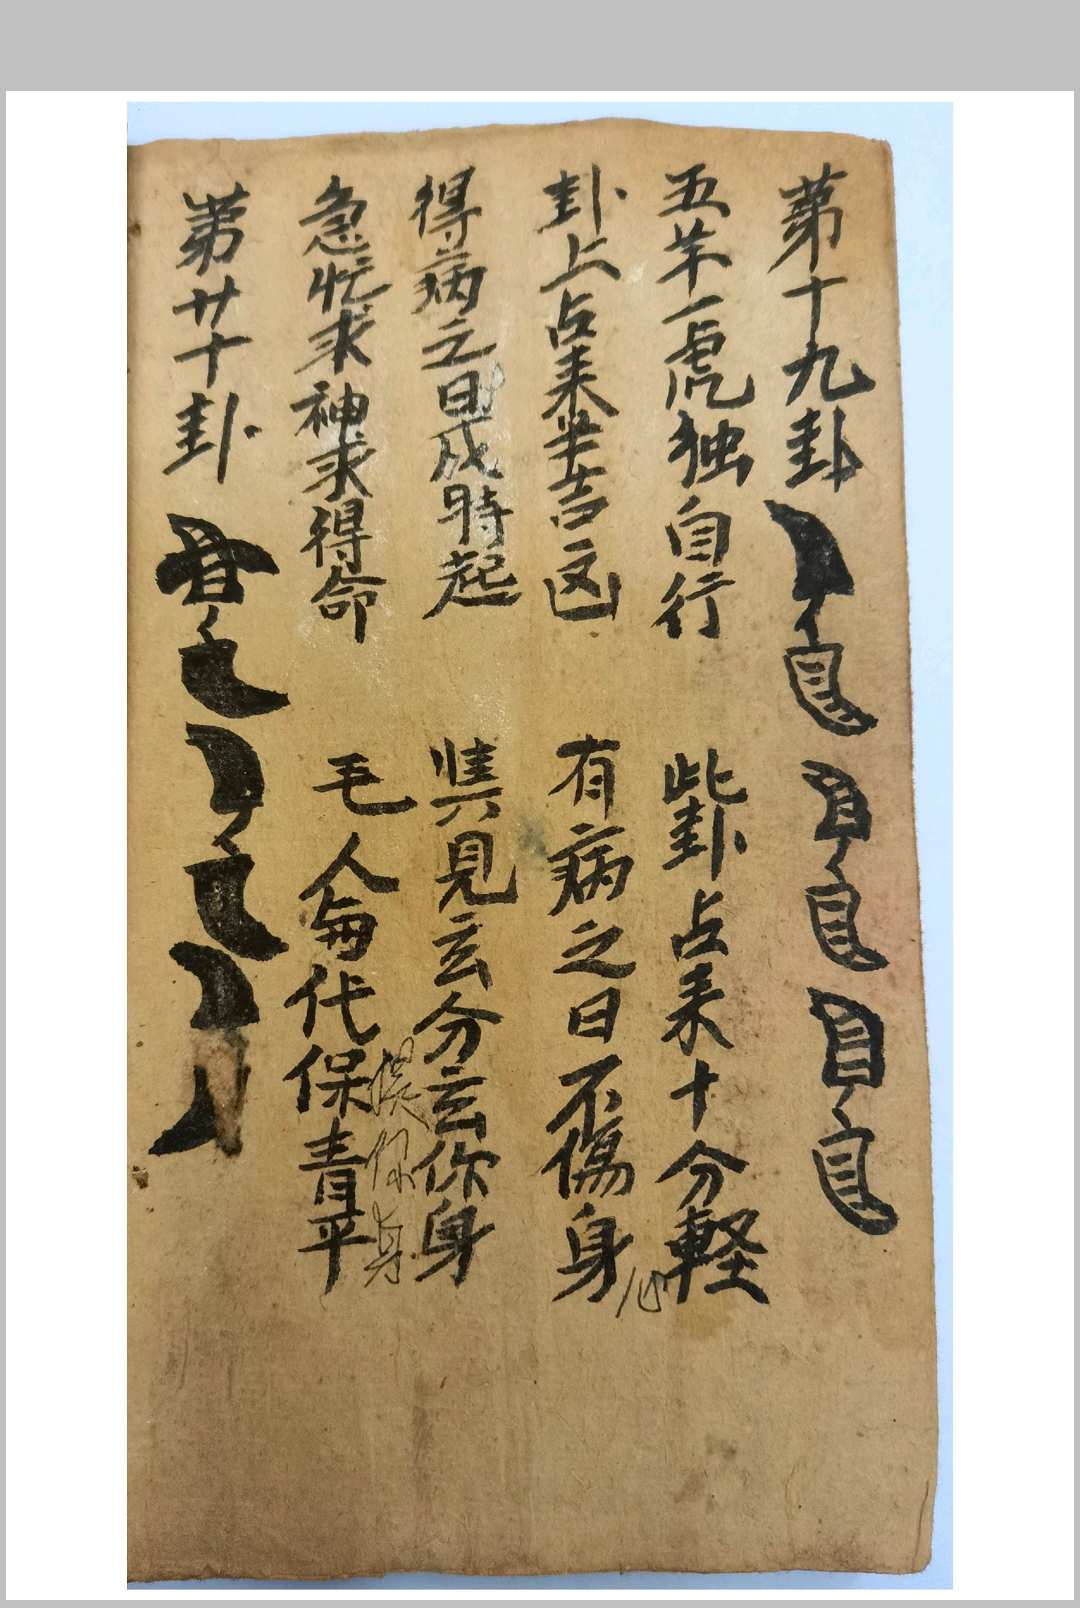 第十九卦
五羊一虎独自行 此卦占来十分軽
卦上占来出吉凶 有病之日不傷身
心
得病之日成時起 見玄分玄你身
急忙求神求得命 毛人俻代保青平
你身
第廿十卦